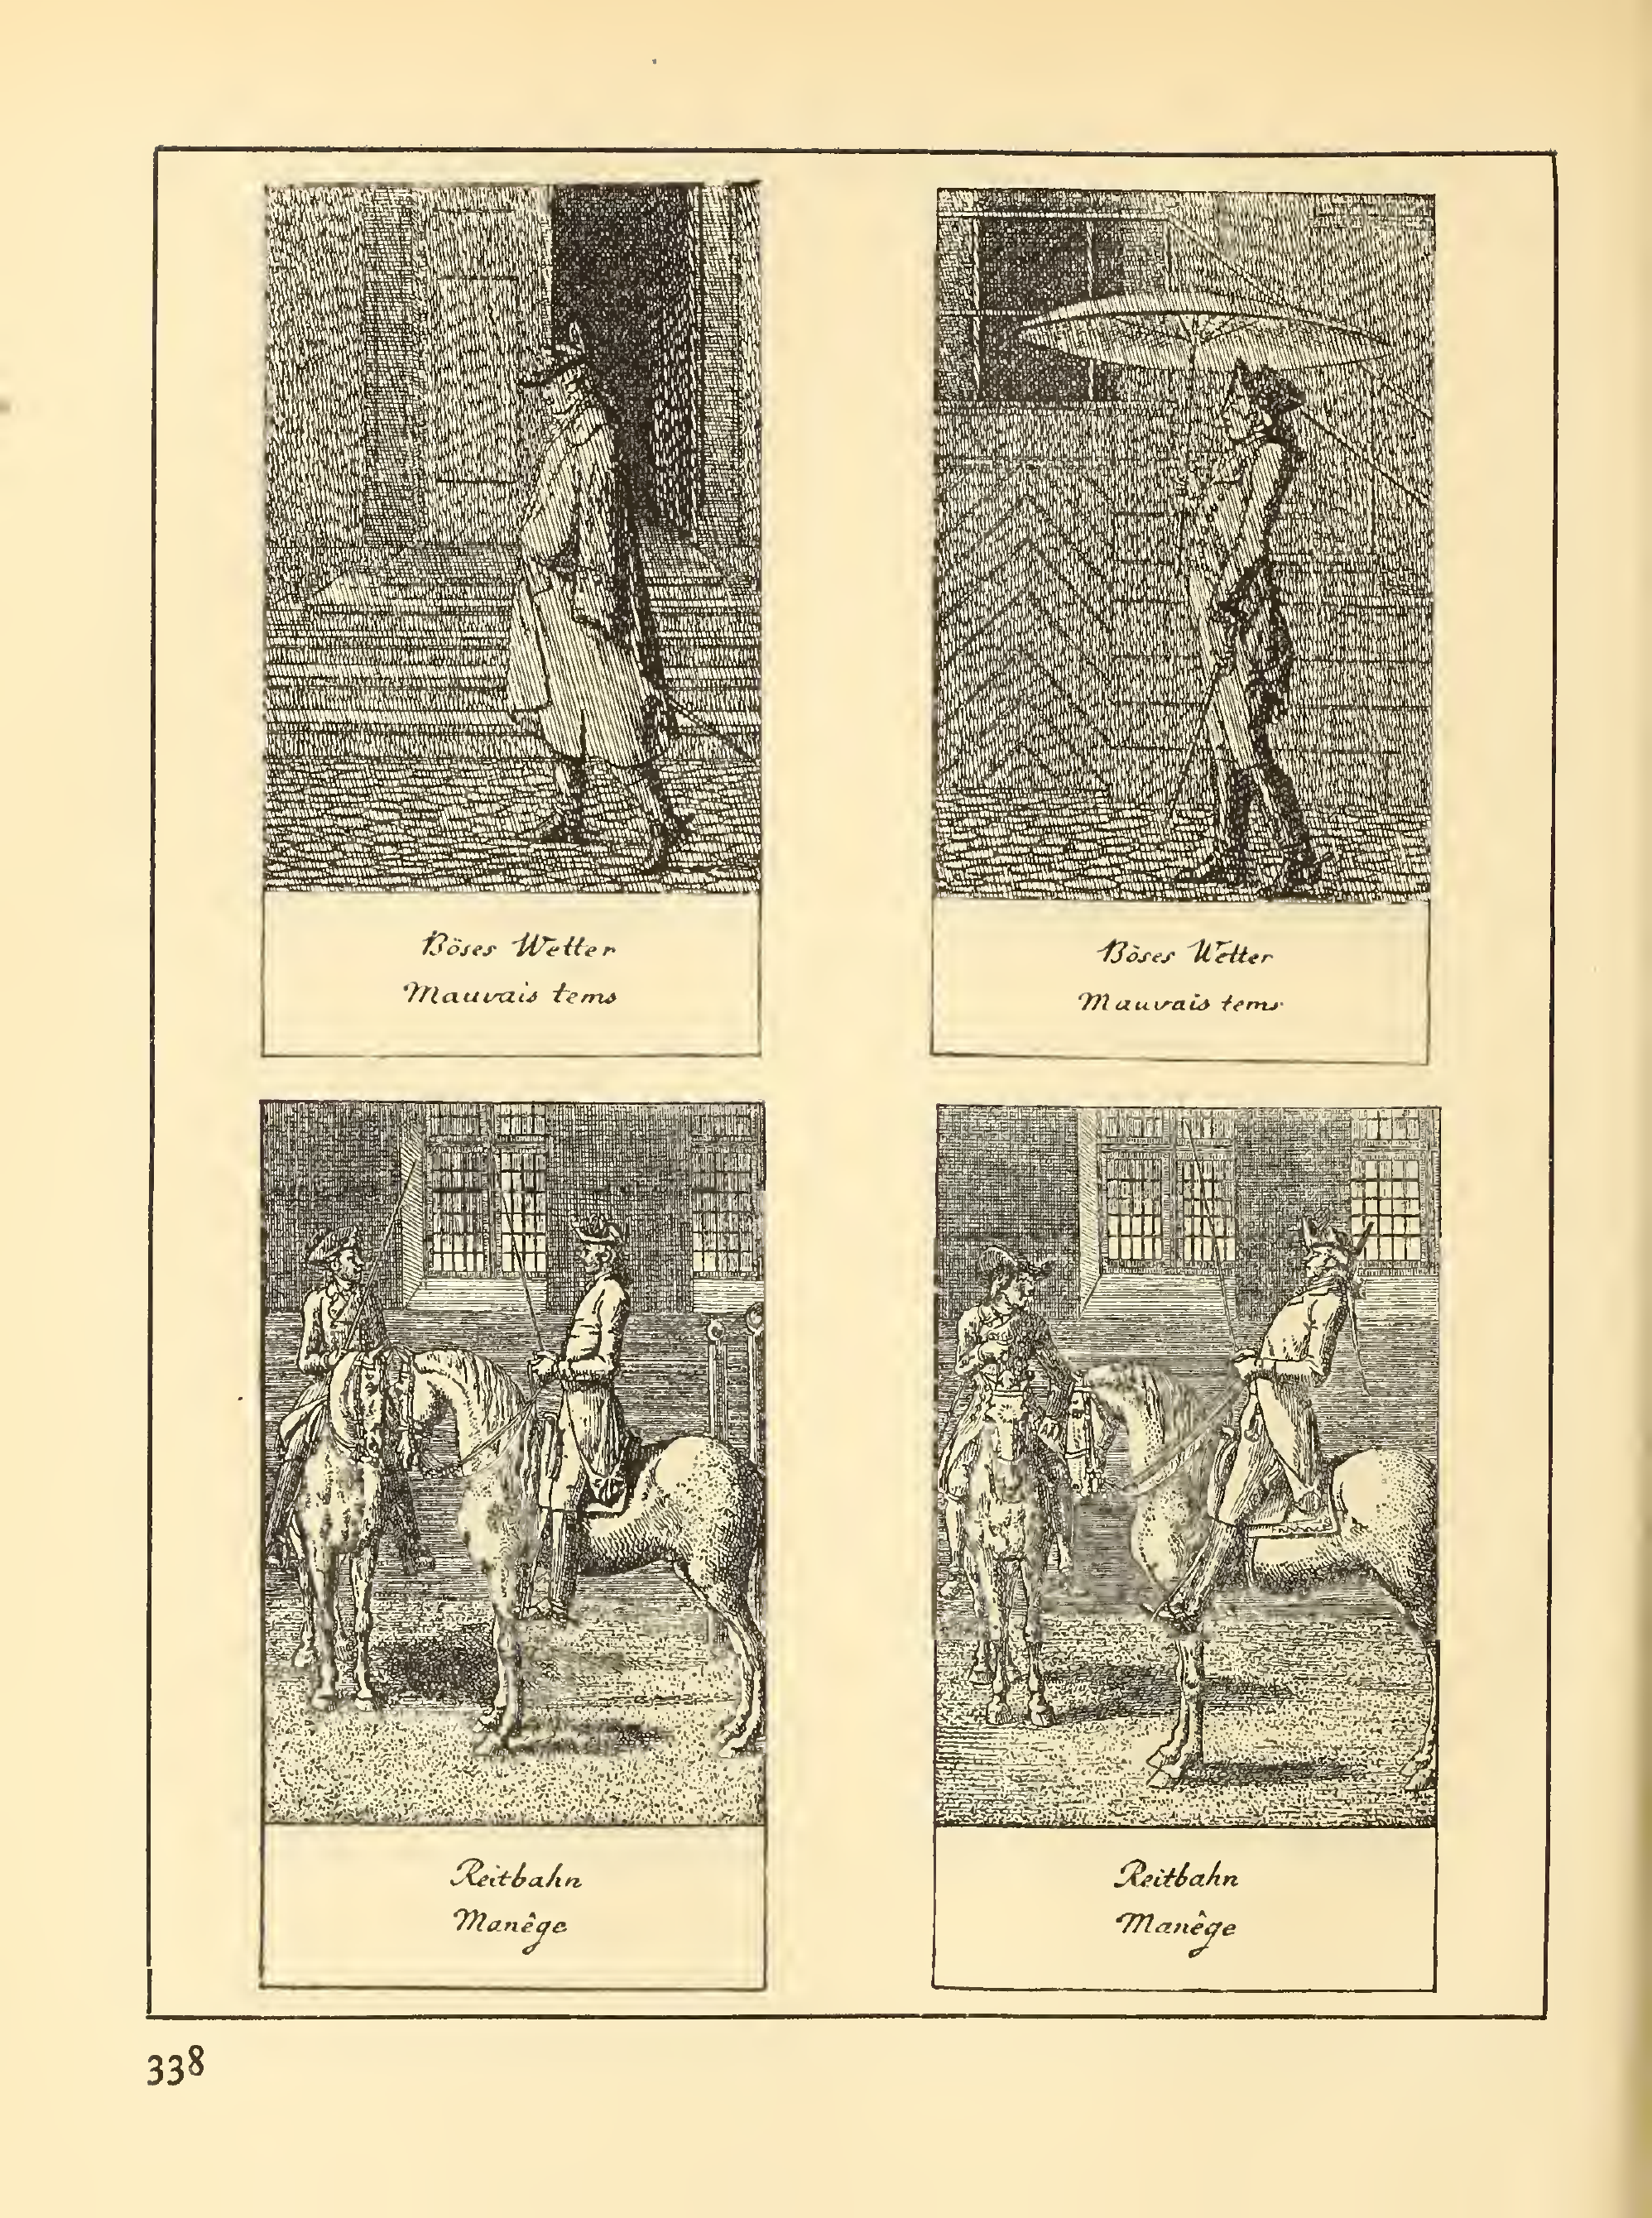 Böses Wetter
Mauvais tems
Böses Wetter
Mauvais tems
Reitbahn
Manêge
Reitbahn
Manêge
338